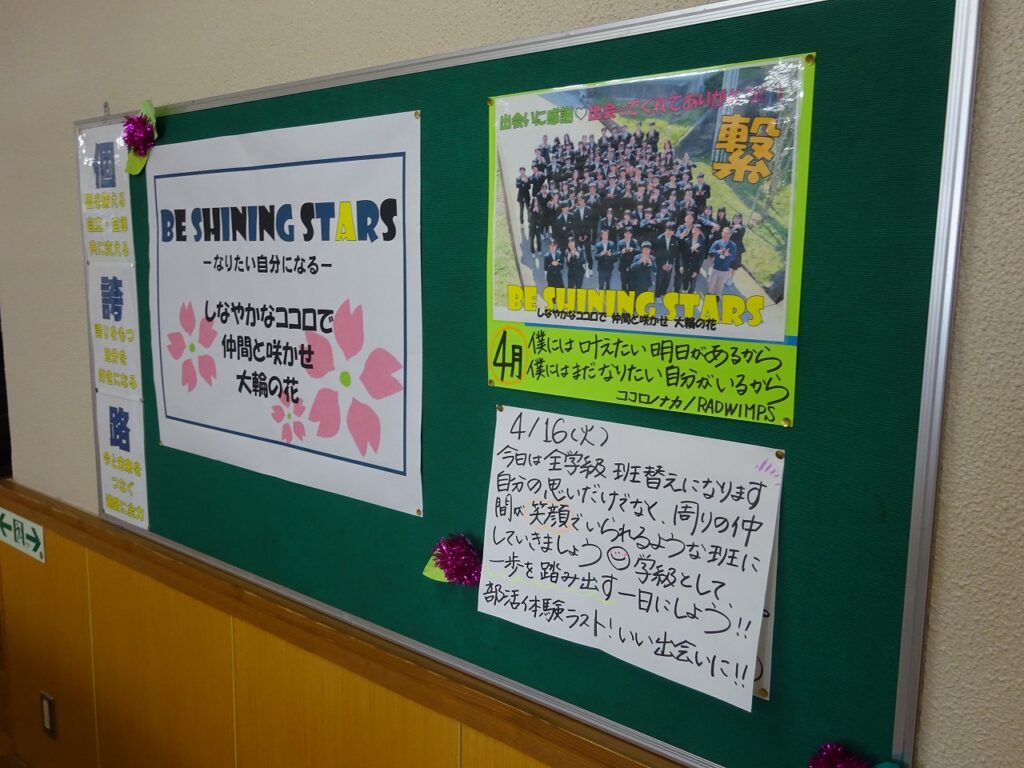 個
自立・自律
共に支える
誇
誇りをもつ
自分を
好きになる
路
今と未来を
つなぐ
BE SHINING STARS
ーなりたい自分になるー
しなやかなココロで
仲間と咲かせ
大輪の花
出会いに感謝♡出会ってくれてありがとう
繋
BE SHINING STARS
しなやかココロで 仲間と咲かせ 大輪の花
4月
僕には叶えたい明日があるから
僕にはまだなりたい自分がいるから
ココロノナカ/RADWIMPS
4/16(火)
今日は全学級 班替えになります
自分の思いだけでなく、周りの仲
間が笑顔でいられるような班に
していきましょう☺学級として、
一歩を踏み出す一日にしよう!!
部活体験ラスト!いい出会いに!!